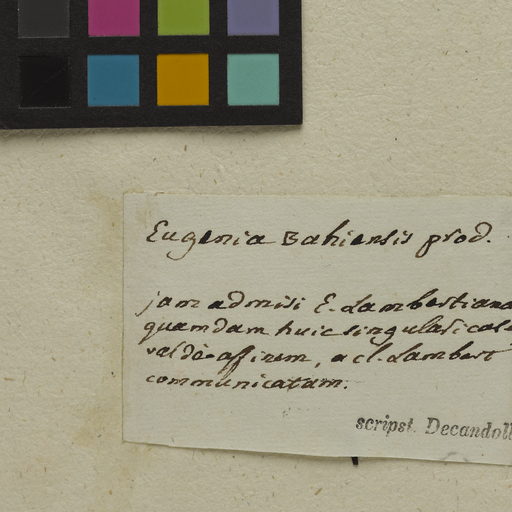 Eugenia Bahiensis prod.
jam admisi E. Lambertiana
quamdam huic singulari
valdè affinem, a cl. Lambert
communicatam.
scripst. Decandoll